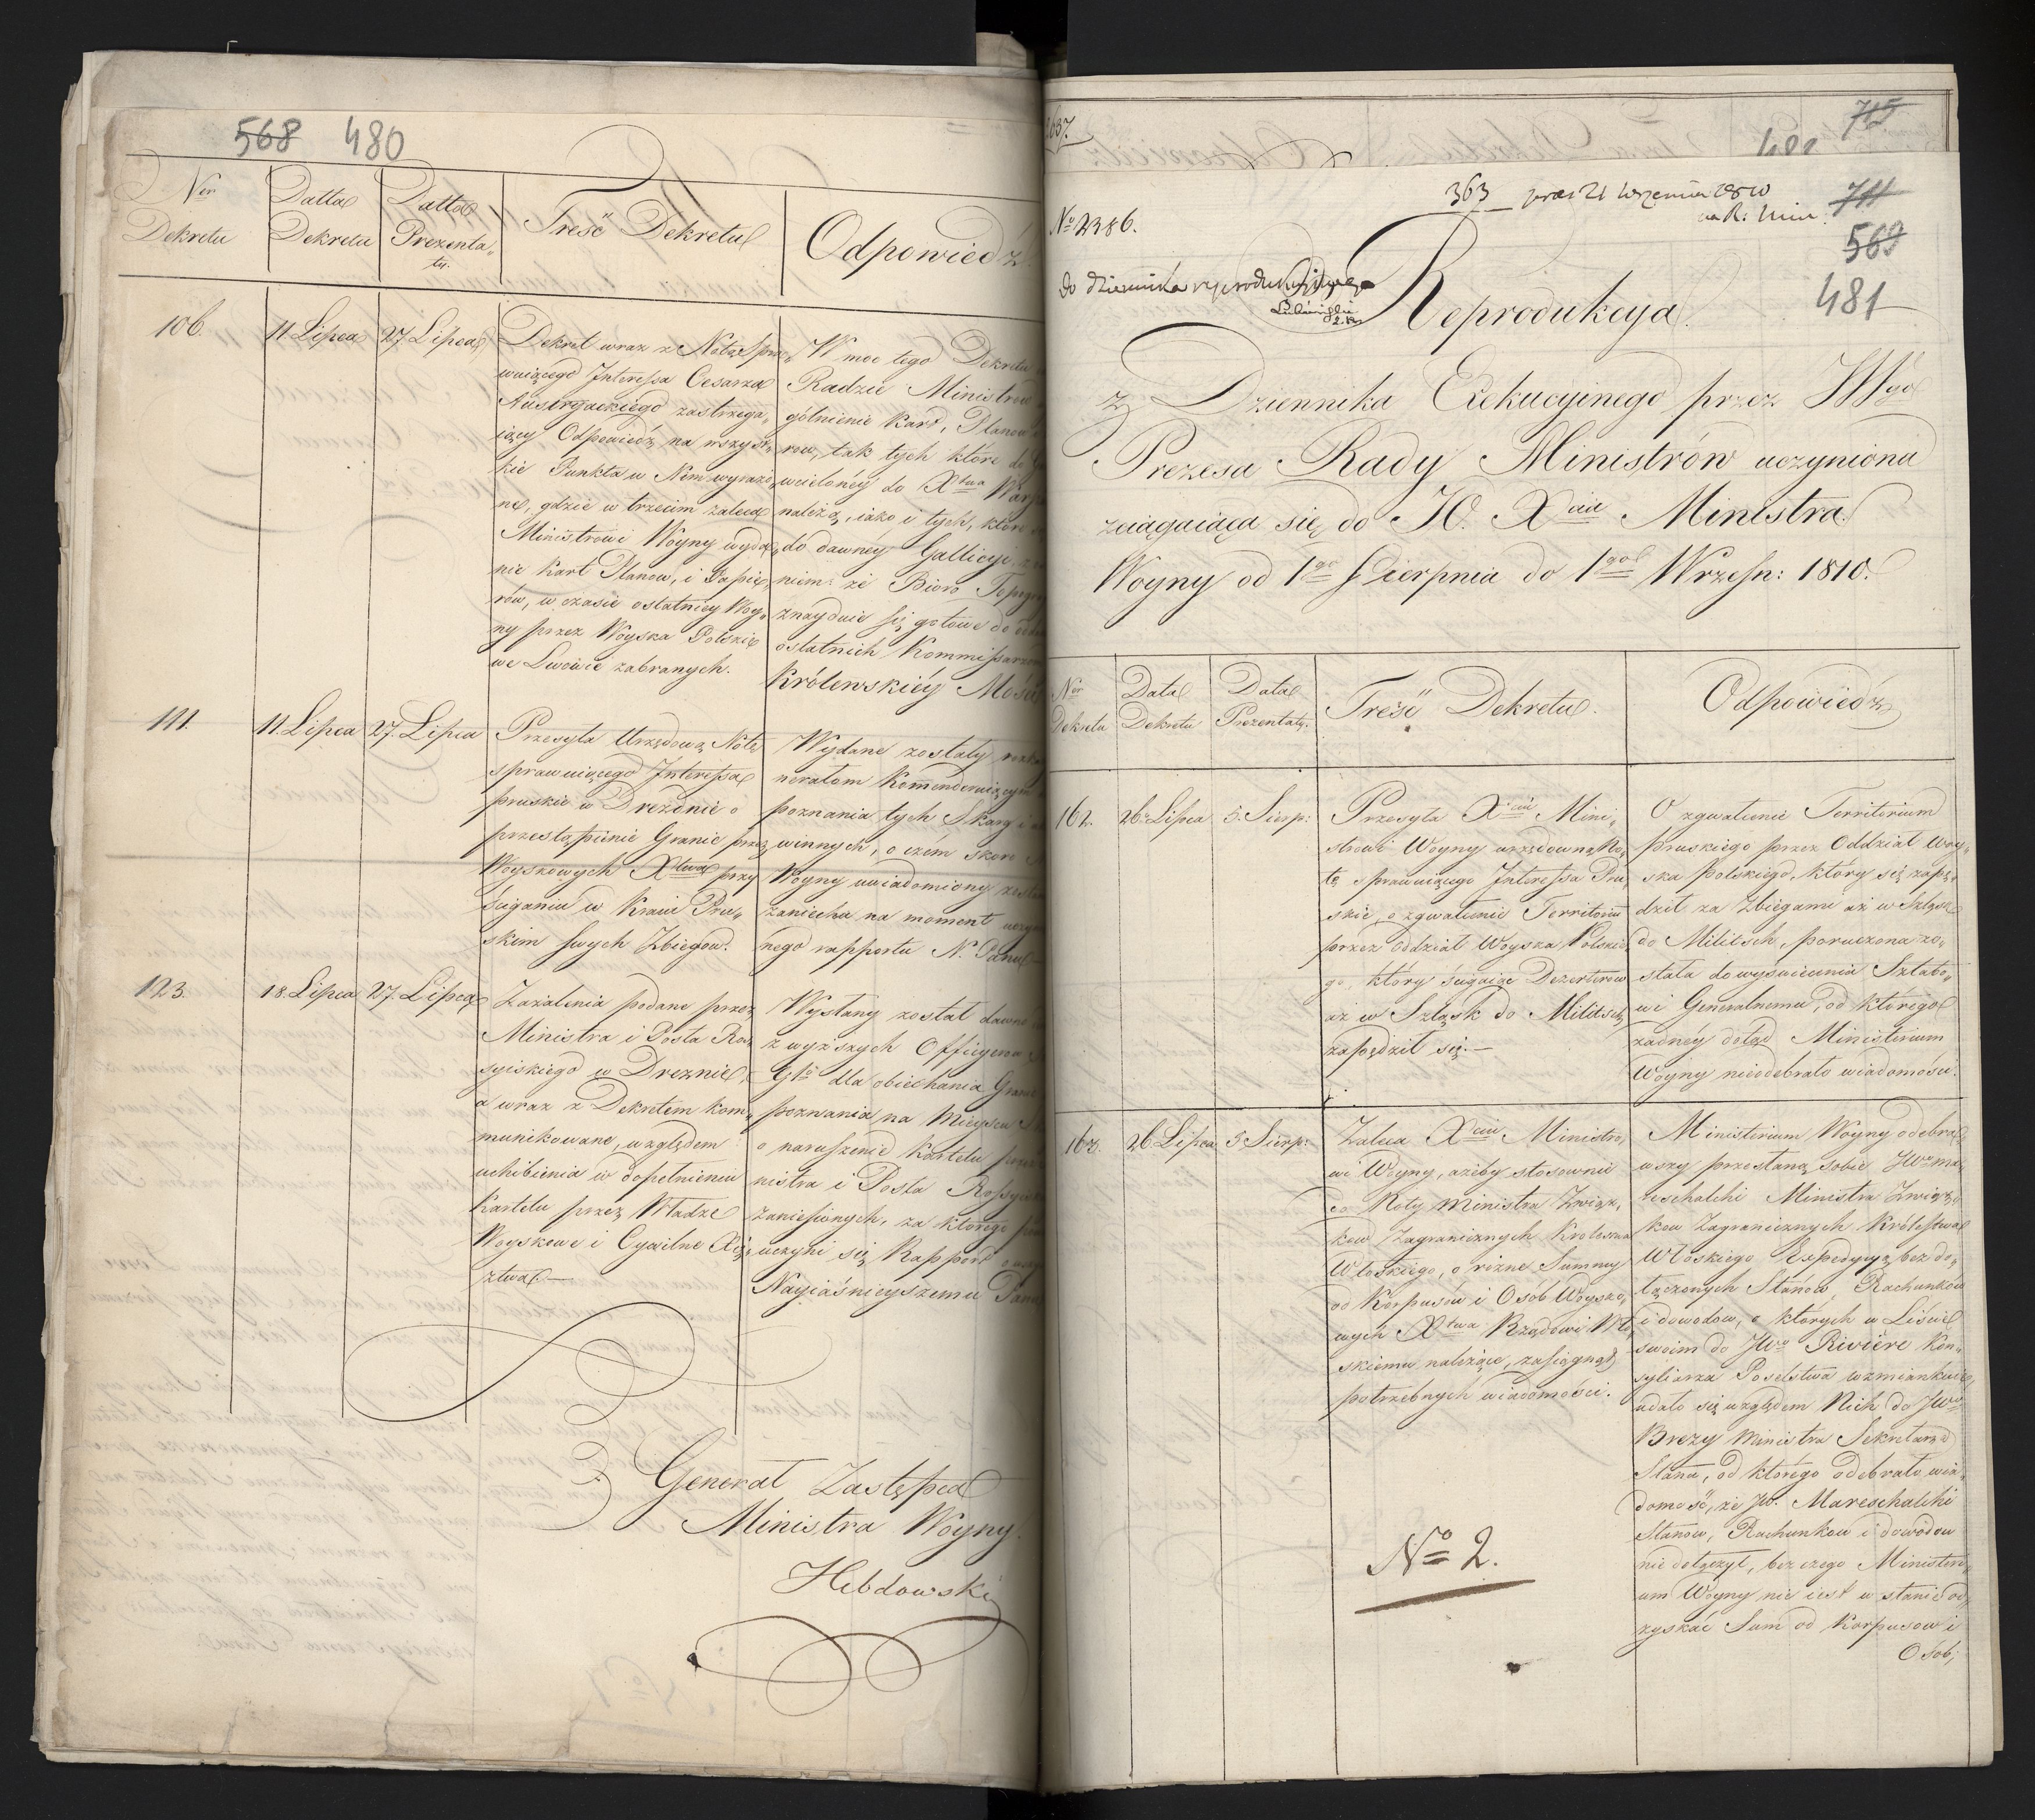 568 480
Ner Dekretu
Datta Dekretu
Datta Prezenta„ty.
Treść Dekretu
Odpowiedź
106.
11. Lipca
27 Lipca
Dekret wraz z Notą Spra„
wuiącego Interessa Cesarza
Austryackiego zastrzega„
iący Odpowiedź na wszyst„
kie Punkta w Nim wyrażo„
ne, gdzie w trzecim zaleca
Ministrowi Woyny wyda„
nie Kart Planow, i Papie„
rów, w czasie ostatniey Woy„
ny przez Woyska Polskie
we Lwowie zabranych.
W moc tego Dekretu
Radzie Ministrow
gólnienie Kart, Planow
row, tak tych które do
wcieloney do Xtwa
należą, iako i tych, które
do dawney Gallicyi,
niem: że Bióro
znayduie się gotowe do
ostatnich Kommissarzom
Królewskiéy Mości
111.
11. Lipca
27. Lipca
Przesyła Urzędową Notę
sprawuiącego Interessa
pruskie w Dreźdnie o
przestąpienie Granic przez
Woyskowych Xtwa przy
ściganiu w Kraiu Pru„
skim swych Zbiegow.
Wydane zostały
nerałom Kommenderuiącym
poznania tych Skarg i
winnych, o czem skoro
Woyny uwiadomiony
zaniecha na moment
nego rapportu N. Panu
123.
18. Lipca
27. Lipca
Zażalenia podane przez
Ministra i Posła Ros„
syiskiego w Dreznie,
a wraz z Dekretem kom„
munikowane, względem
uchibienia w dopełnieniu
Kartelu przez Władze
Woyskowe i Cywilne Xię„
ztwa.—
Wysłany został dawno
z wyższych Officyerow
Głó dla obiechania Granic
poznania na Mieyscu
o naruszenie Kartelu
nistra i Posła Rossyi
zaniesionych, za którego
uczyni się Rapport
Nayiaśnieyszemu Panu
Generał Zastępca
Ministra Woyny.
Hebdowski
715
482
363 prez 21 Września 1810
w R: Min:
711
569
481
No 2386.
do dziennika reprodukcyinego
Reprodukcya.
z Dziennika Exekucyinego przez JWgo
Prezesa Rady Ministrów uczyniona
zciągaiąca się do JO. Xcia Ministra
Woyny od 1go Sierpnia do 1go Wrzesn: 1810.
Ner Dekretu
Data Dekretu
Data Prezentaty:
Treść Dekretu.
Odpowiedź
162.
26. Lipca
5. Sierp:
Przesyła Xciu Mini„
strowi Woyny urzędowną No„
tę sprawuiącego Interessa Pru„
skie, o zgwałcenie Territorium
przez oddział Woyska Polskie„
go, który ścigaiąc Dezerterow
aż w Szląsk do Militsch
zapędził się.—
O zgwałcenie Territorium
Pruskiego przez Oddział Woy„
ska Polskiego, który się zapę„
dził za Zbiegami aż w Szląsk
do Militsch, poruczona zo„
stała do wyśwęcenia Sztabo„
wi Generalnemu, od którego
żadney dotąd Ministerium
Woyny nieodebrało wiadomości.
163.
26. Lipca
5. Sierp:
Zaleca Xciu Ministro„
wi Woyny, ażeby stosownie
do Noty Ministra Związ„
kow Zagranicznych Krolestwa
Włoskiego, o różne Summy
od Korpusów i Osób Woysko„
wych Xtwa Rządowi Wło„
skiemu należące, zasiągnął
potrzebnych wiadomości.
Ministerium Woyny odebra„
wszy przesłaną sobie JWo Ma„
reschalchi Ministra Związ„
kow Zagranicznych Królestwa
Włoskiego Expedycyą bez do„
łączonych Stanów, Rachunkow
i dowodow, o których w Liście
swoim do JWo Riviere Kon„
syliarza Poselstwa wzmiankuie,
udało się względem Nich do JWo
Brezy Ministra Sekretarza
Stanu, od którego odebrało wia„
domość, że JW. Mareschalchi
Stanow, Rachunkow i dowodow
nie dołączył, bez czego Ministeri„
um Woyny nie iest w stanie od„
zyskać Sum od Korpusow i
Osób,
No 2.